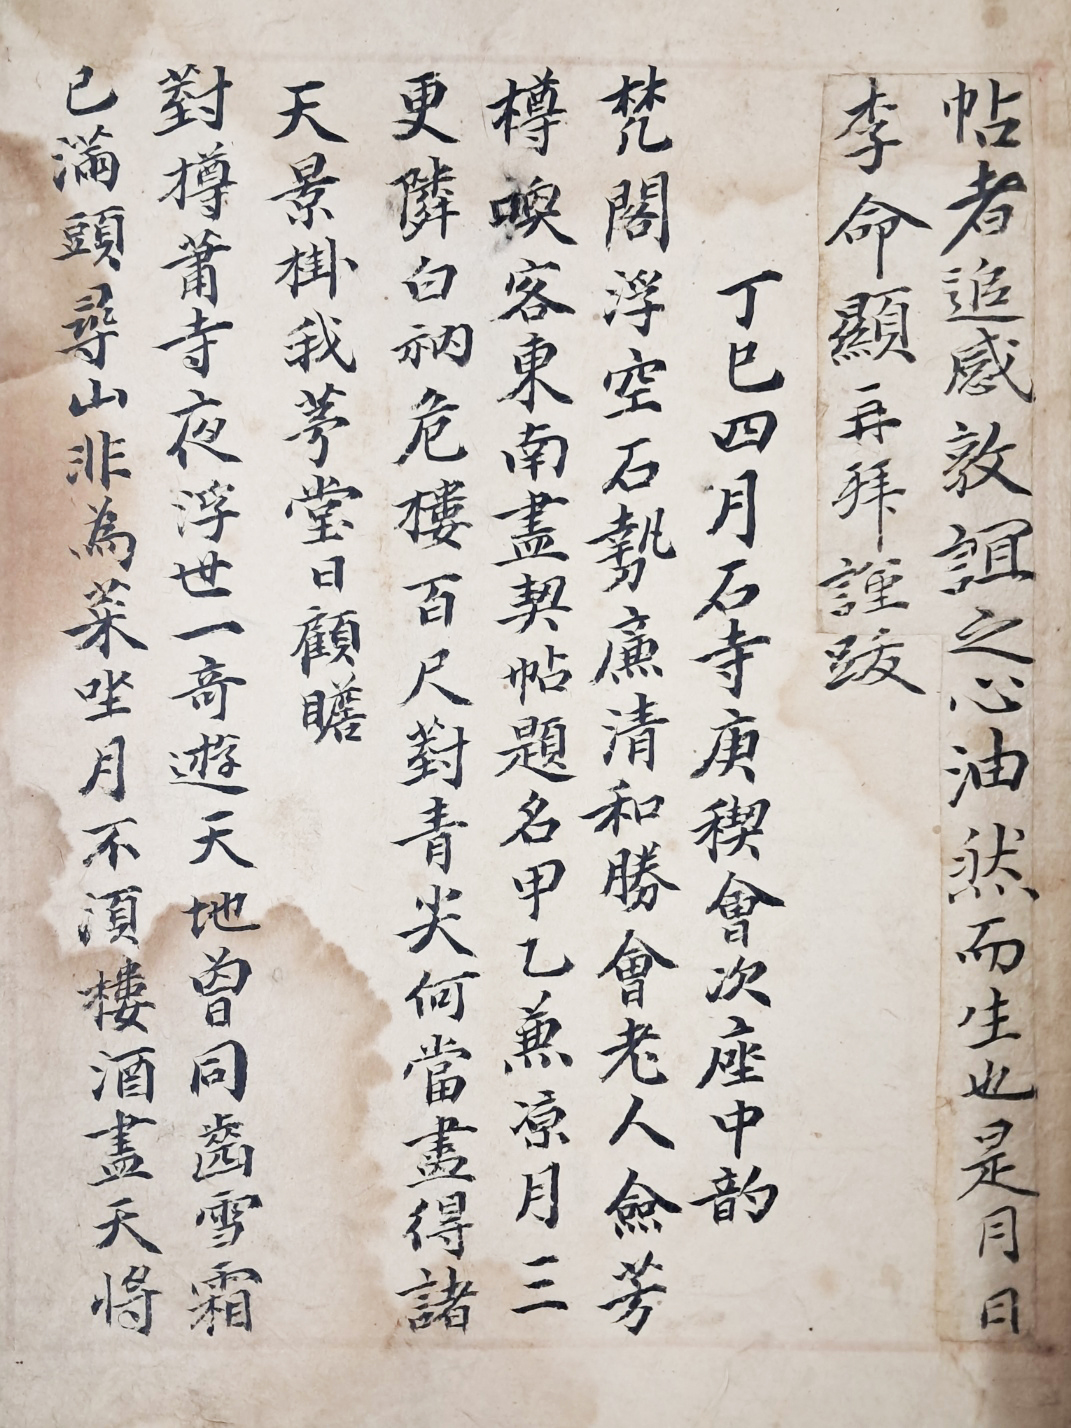 帖者追感敦誼之心油然而生也是月日
李命顯再拜謹跋
丁巳四月石寺庚稧會次座中韵
梵閣浮空石勢廉清和勝會老人僉芳
樽喚客東南盡契帖題名甲乙兼凉月三
更隣白衲危樓百尺對青尖何當盡得諸
天景掛我茅堂日顧瞻
對樽蕭寺夜浮世一奇遊天地曾同齒雪霜
已滿頭尋山非為菜坐月不須樓酒盡天將